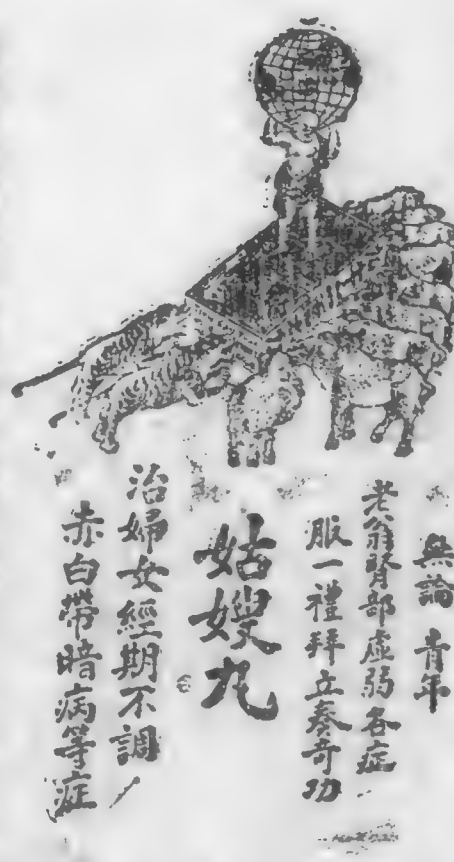 無論 青年
老翁腎部虛弱各症
服一禮拜立奏奇功
姑嫂丸
治婦女經期不調
赤白帶暗病等症